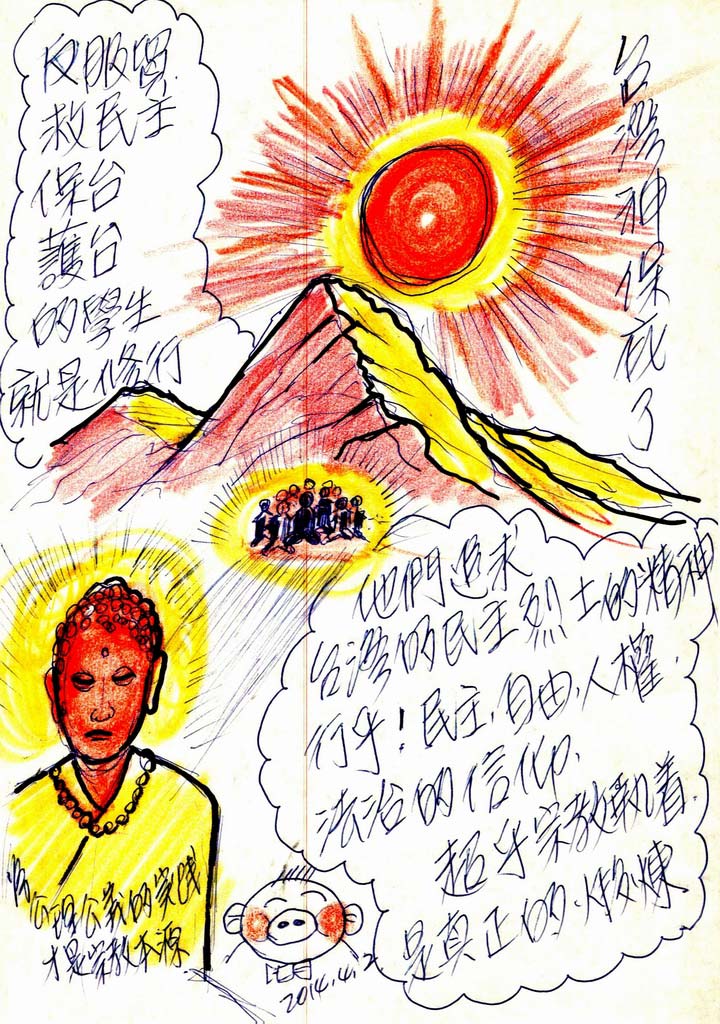 反服貿
救民主
保台
護台
的學生
就是修行
台灣神保庇了
他們追求
台灣的民主烈士的精神
行乎!民主,自由,人權,
法治的信仰,
超乎宗教執着
是真正的修煉
公理公義的實踐
才是宗教本源
2014.4.2